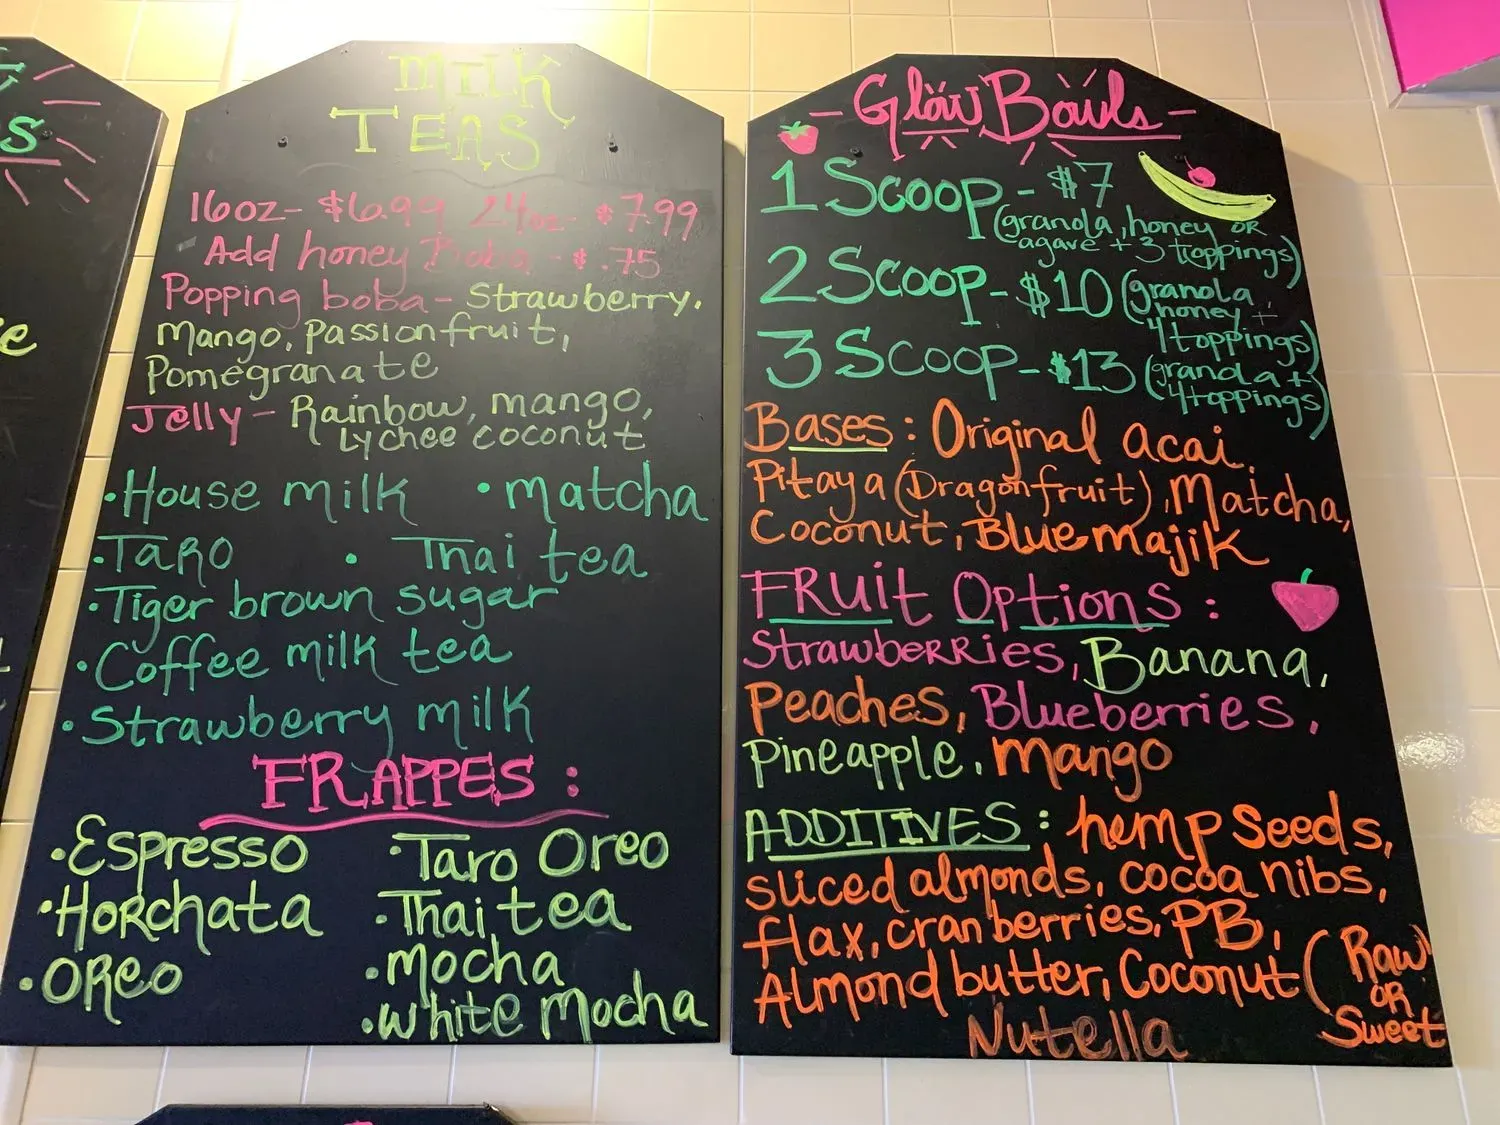 S
e
MILK
TEAS
16oz- $6.99 24oz- $7.99
Add honey Boba - $.75
Popping boba- Strawberry,
Mango, Passionfruit,
Pomegranate
Jelly - Rainbow, mango,
lychee coconut
•House milk •matcha
•TARO • Thai tea
•Tiger brown sugar
•Coffee milk tea
•Strawberry milk
FRAPPES:
•Espresso •Taro Oreo
•Horchata •Thai tea
•OReo •Mocha
•White Mocha
- Glow Bowls -
1 Scoop - $7
(granola, honey OR
agave + 3 toppings)
2 Scoop - $10 (granola,
honey +
4 toppings)
3 Scoop - $13 (granola +
4 toppings)
Bases: Original acai,
Pitaya (Dragonfruit), Matcha,
Coconut, Blue majik
FRuit Options:
StrawbeRRies, Banana,
Peaches, Blueberries,
pineapple, mango
ADDITIVES: hemp Seeds,
sliced almonds, cocoa nibs,
flax, cranberries, PB,
Almond butter, Coconut (Raw
OR
Sweet
Nutella